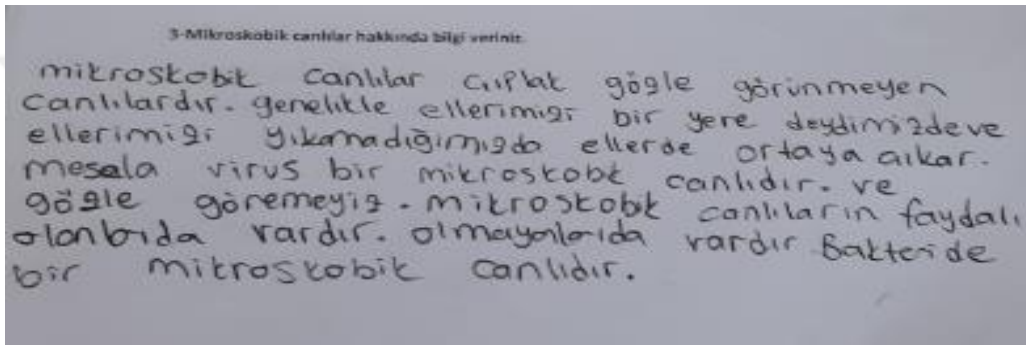 3-Mikroskobik canlılar hakkında bilgi veriniz.
mikroskobik canlılar çıplak gögle görünmeyen
canlılardır. genelikle ellerimizi bir yere deydimizdeve
ellerimizi yıkamadığımızda ellerde ortaya çıkar.
mesela virus bir mikroskobk canlıdır. ve
gözle göremeyiz. mikroskobk canlıların faydalı
olanlarıda vardır. olmayanlarıda vardır Bakteride
bir mikroskobik canlıdır.